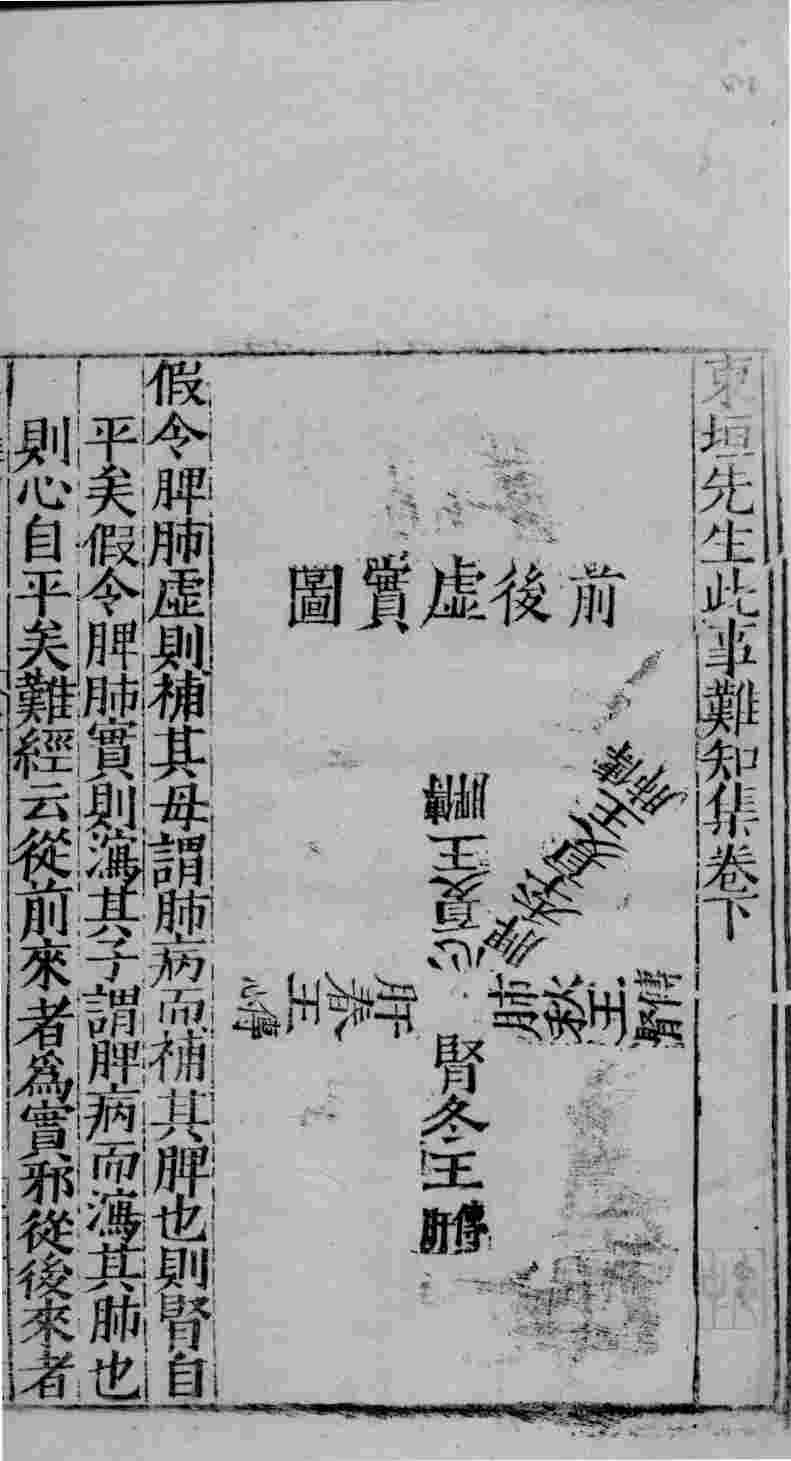 東垣先生此事難知集卷下
前後虛實圖
心夏王
傳脾
脾季夏王
傳肺
肺秋王
傳腎
腎冬王
傳肝
肝春王
傳心
假令脾肺虛則補其母謂肺病而補其脾也則腎自
平矣假令脾肺實則瀉其子謂脾病而瀉其肺也
則心自平矣難經云從前來者爲實邪從後來者